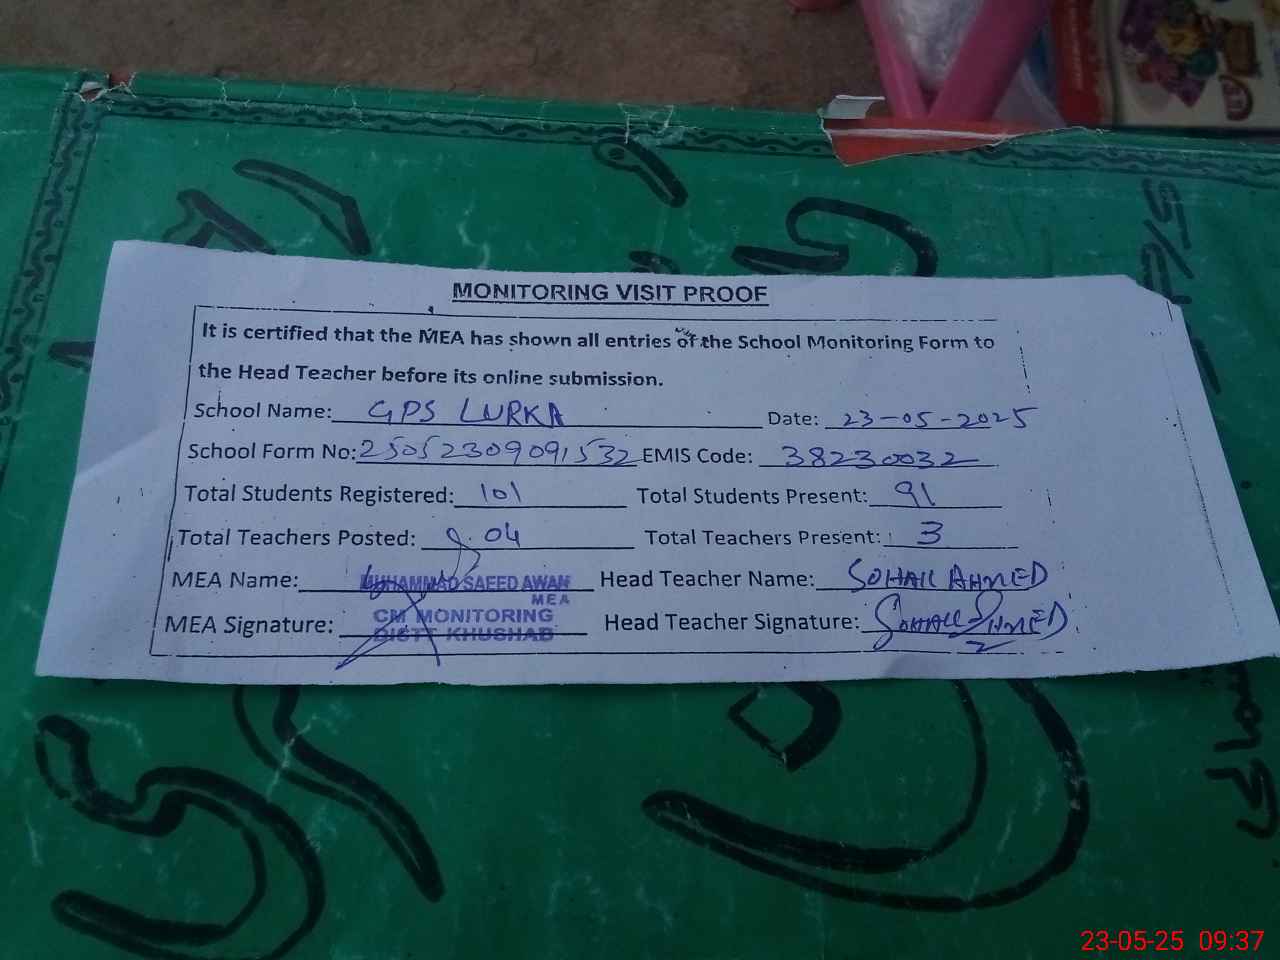 MONITORING VISIT PROOF
It is certified that the MEA has shown all entries of the School Monitoring Form to
the Head Teacher before its online submission.
School Name: GPS LURKA Date: 23-05-2025
School Form No: 25052309091532 EMIS Code: 38230032
Total Students Registered: 101 Total Students Present: 91
Total Teachers Posted: 04 Total Teachers Present: 3
MEA Name: MUHAMMAD SAEED AWAN Head Teacher Name: SOHAIL AHMED
MEA
CM MONITORING
MEA Signature: DISTT KHUSHAB Head Teacher Signature: SOHAIL AHMED
23-05-25 09:37